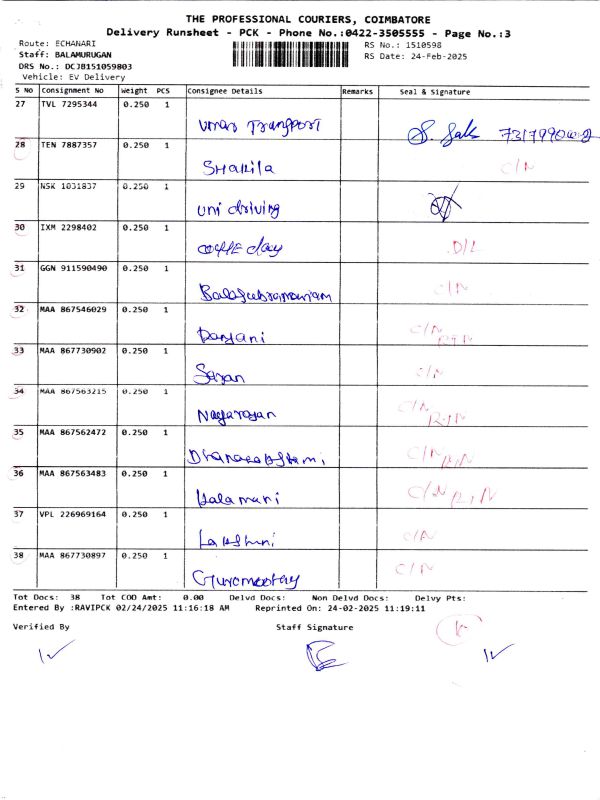 THE PROFESSIONAL COURIERS, COIMBATORE
Delivery Runsheet - PCK - Phone No.:0422-3505555 - Page No.:3
Route: ECHANARI
Staff: BALAMURUGAN
DRS No.: DCJB151059803
Vehicle: EV Delivery
RS No.: 1510598
RS Date: 24-Feb-2025
S NO Consignment No Weight PCS Consignee Details Remarks Seal & Signature
27 TVL 7295344 0.250 1 Transport
28 TEN 7887357 0.250 1 Shakila C/N
29 NSK 1031837 0.250 1 uni driving
30 IXM 2298402 0.250 1 coffE day D/L
31 GGN 911590490 0.250 1 Balasubramaniam C/N
32 MAA 867546029 0.250 1 C/N RTN
33 MAA 867730902 0.250 1 C/N
34 MAA 867563215 0.250 1 Nagarajan C/N RTN
35 MAA 867562472 0.250 1 C/N RTN
36 MAA 867563483 0.250 1 C/N RTN
37 VPL 226969164 0.250 1 C/N
38 MAA 867730897 0.250 1 C/N
Tot Docs: 38 Tot COD Amt: 0.00 Delvd Docs: Non Delvd Docs: Delvy Pts:
Entered By :RAVIPCK 02/24/2025 11:16:18 AM Reprinted On: 24-02-2025 11:19:11
Verified By Staff Signature